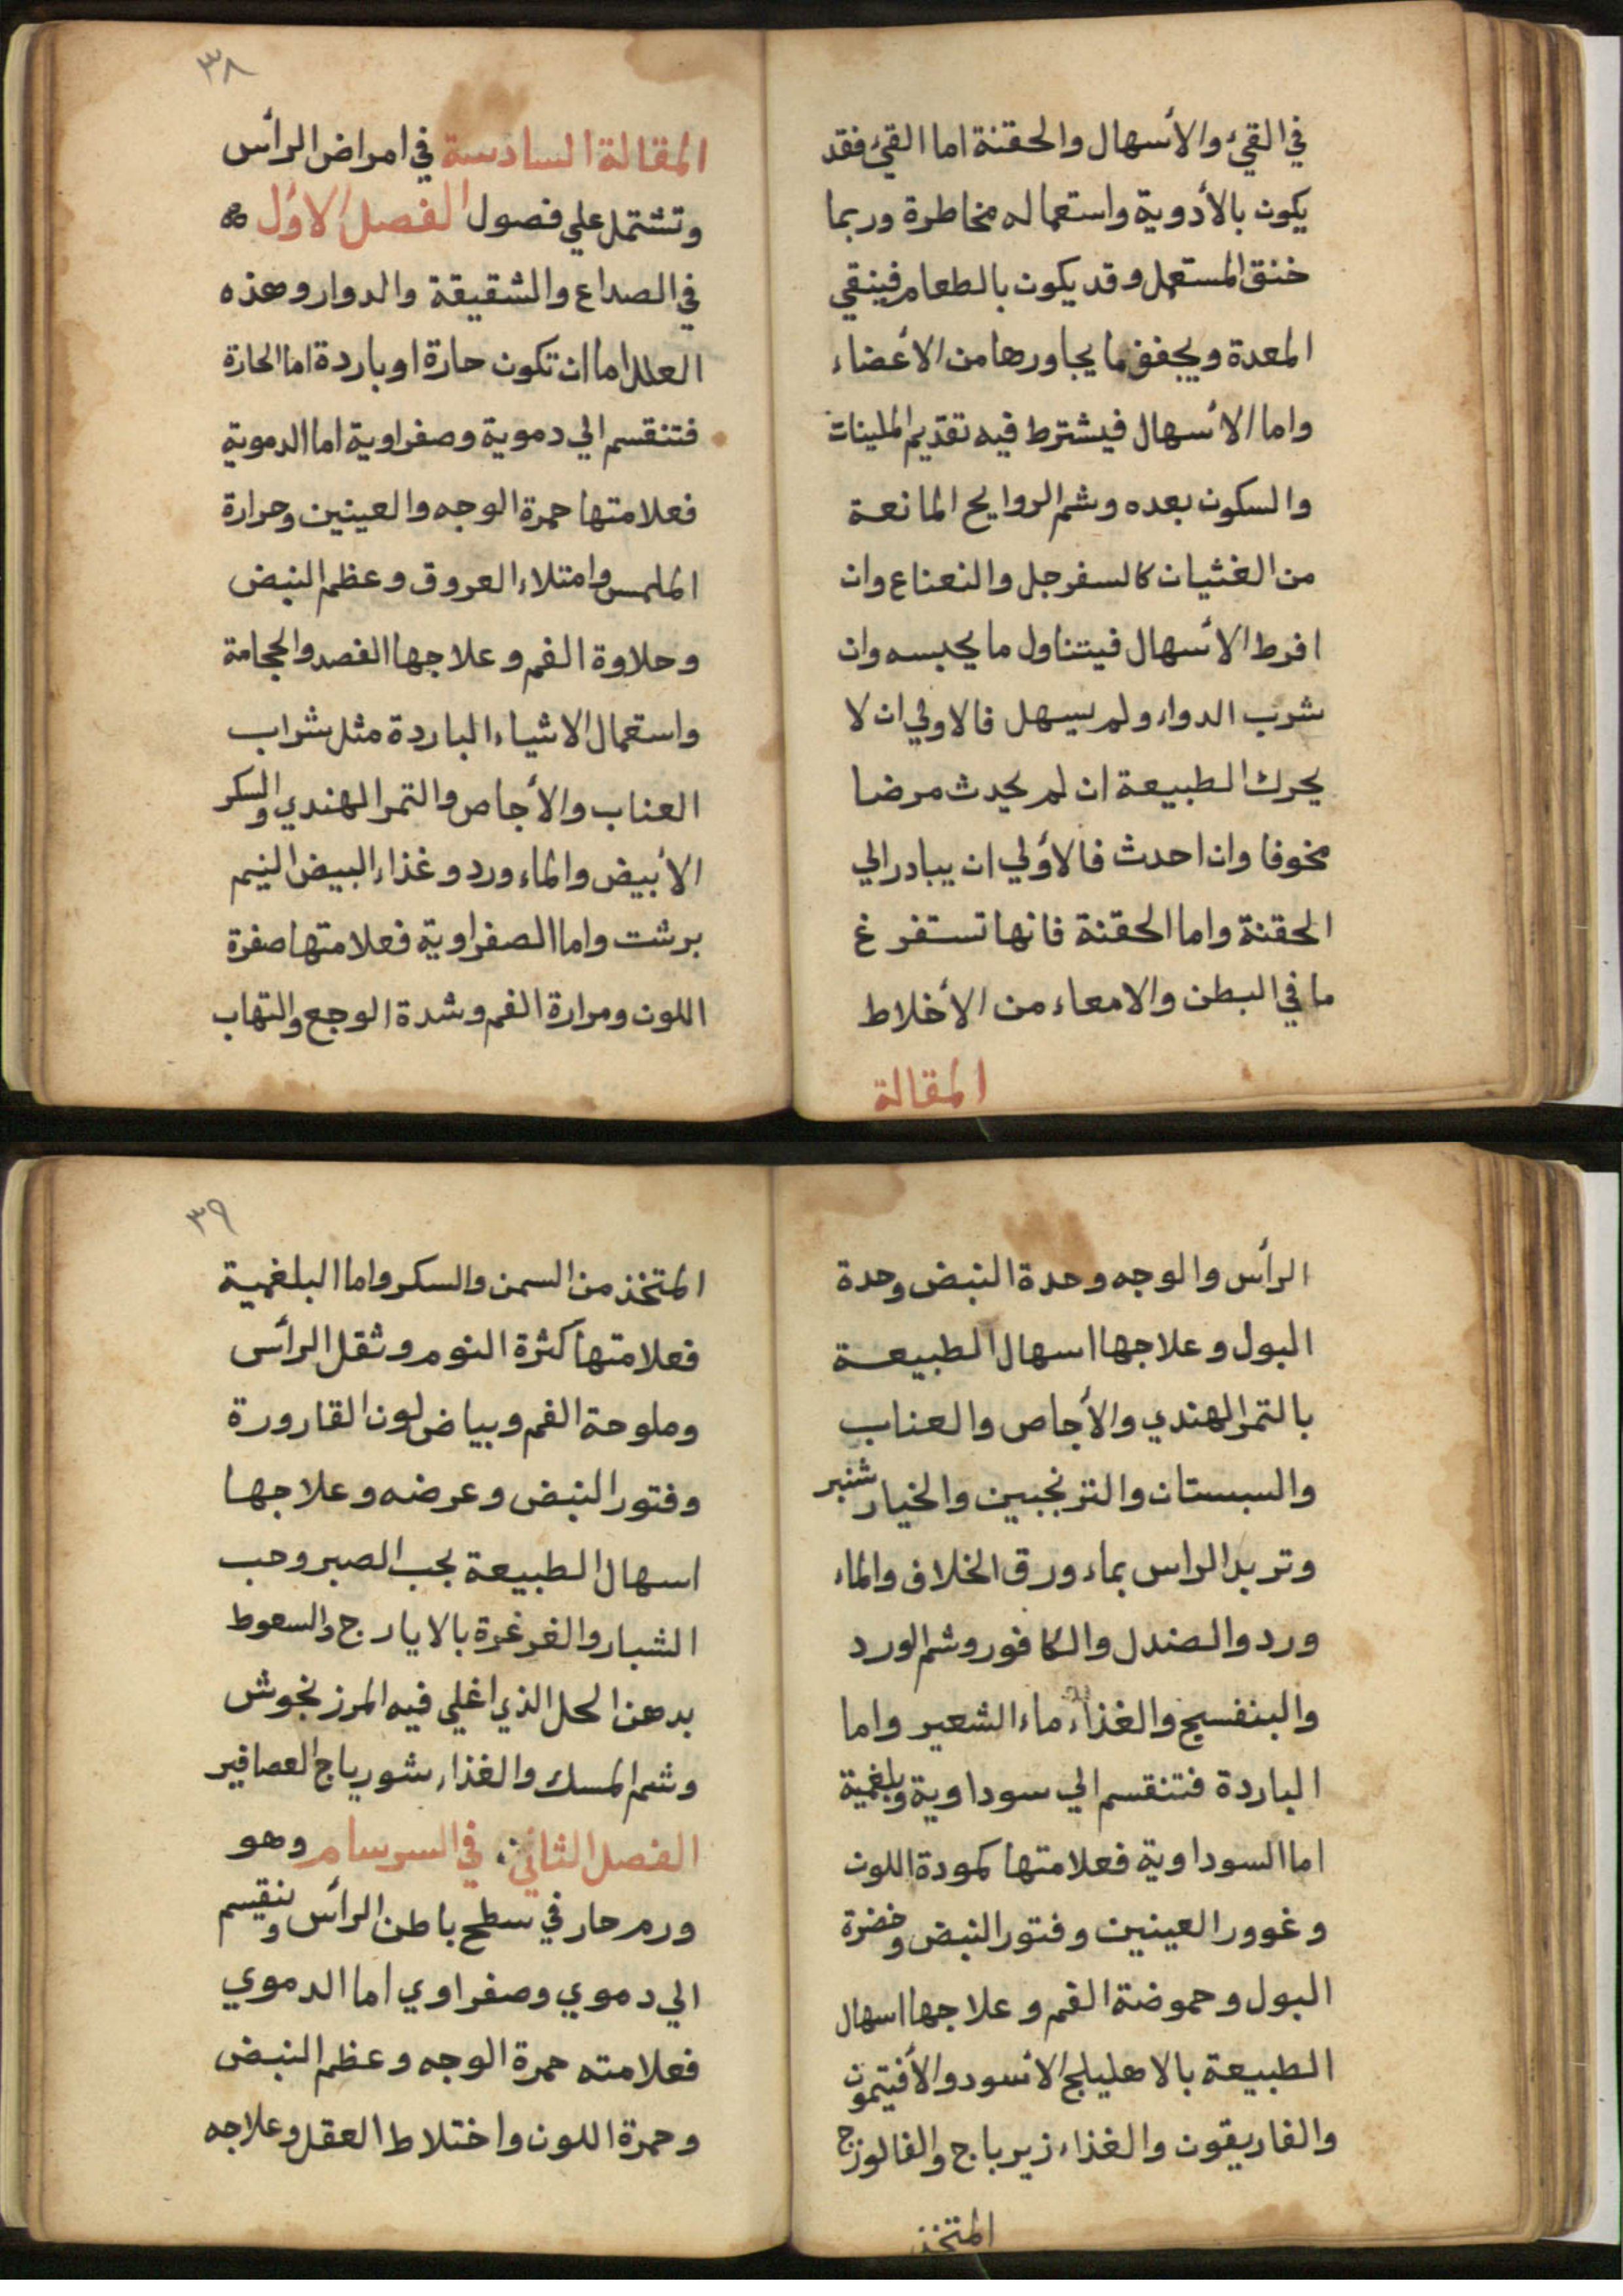 في القيء والأسهال والحقنة اما القيء فقد
يكون بالأدوية واستعماله مخاطرة وربما
خنق المستعمل وقد يكون بالطعام فينقي
المعدة ويجفف ما يجاورها من الأعضاء
واما الأسهال فيشترط فيه تقديم الملينات
والسكون بعده وشم الروايح المانعة
من الغثيان كالسفرجل والنعناع وان
افرط الأسهال فيتناول ما يحبسه وان
شرب الدواء ولم يسهل فالاولي ان لا
يحرك الطبيعة ان لم يحدث مرضا
مخوفا وان احدث فالأولي ان يبادر الي
الحقنة واما الحقنة فانها تستفرغ
ما في البطن والامعاء من الأخلاط
المقالة
٣٨
المقالة السادسة في امراض الرأس
وتشتمل علي فصول الفصل الاول
في الصداع والشقيقة والدوار وهذه
العلل اما ان تكون حارة او باردة اما الحارة
فتنقسم الي دموية وصفراوية اما الدموية
فعلامتها حمرة الوجه والعينين وحرارة
الملمس وامتلاء العروق وعظم النبض
وحلاوة الفم وعلاجها الفصد والحجامة
واستعمال الاشياء الباردة مثل شراب
العناب والأجاص والتمر الهندي والسكر
الأبيض والماء ورد وغذاء البيض النيم
برشت واما الصفراوية فعلامتها صفرة
اللون ومرارة الفم وشدة الوجع والتهاب
الرأس والوجه وحدة النبض وحدة
البول وعلاجها اسهال الطبيعة
بالتمر الهندي والأجاص والعناب
والسبستان والترنجبين والخيار شنبر
وتربد الراس بماء ورق الخلاف والماء
ورد والصندل والكافور وشم الورد
والبنفسج والغذاء ماء الشعير واما
الباردة فتنقسم الي سوداوية وبلغمية
اما السوداوية فعلامتها كمودة اللون
وغوور العينين وفتور النبض وخضرة
البول وحموضة الفم وعلاجها اسهال
الطبيعة بالاهليلج الأسود والأفتيمون
والغاريقون والغذاء زيرباج والفالوزج
المتخذ
٣٩
المتخذ من السمن والسكر واما البلغمية
فعلامتها كثرة النوم وثقل الرأس
وملوحة الفم وبياض لون القارورة
وفتور النبض وعرضه وعلاجها
اسهال الطبيعة بحب الصبر وحب
الشبار والغرغرة بالايارج والسعوط
بدهن الحل الذي اغلي فيه المرزنجوش
وشم المسك والغذاء شورباج العصافير
الفصل الثاني في السرسام وهو
ورم حار في سطح باطن الرأس وينقسم
الي دموي وصفراوي اما الدموي
فعلامته حمرة الوجه وعظم النبض
وحمرة اللون واختلاط العقل وعلاجه